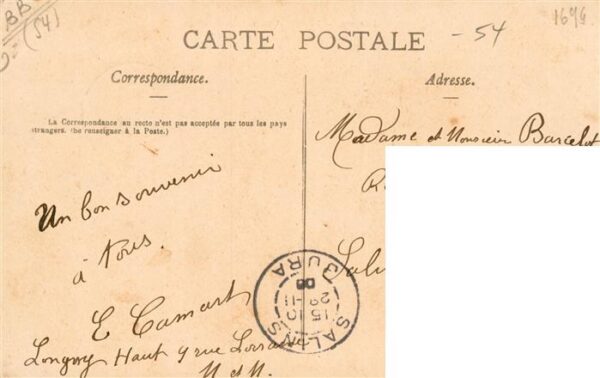 BB
(54)
CARTE POSTALE
- 54
1694
Correspondance.
Adresse.
La Correspondance au recto n'est pas acceptée par tous les pays
étrangers. (Se renseigner à la Poste.)
Madame et Monsieur Barcelot
Un bon souvenir
à tous.
E Camart
Longwy Haut 9 rue Lorraine
M et M.
SALINS
15 10
29 - 11
08
JURA